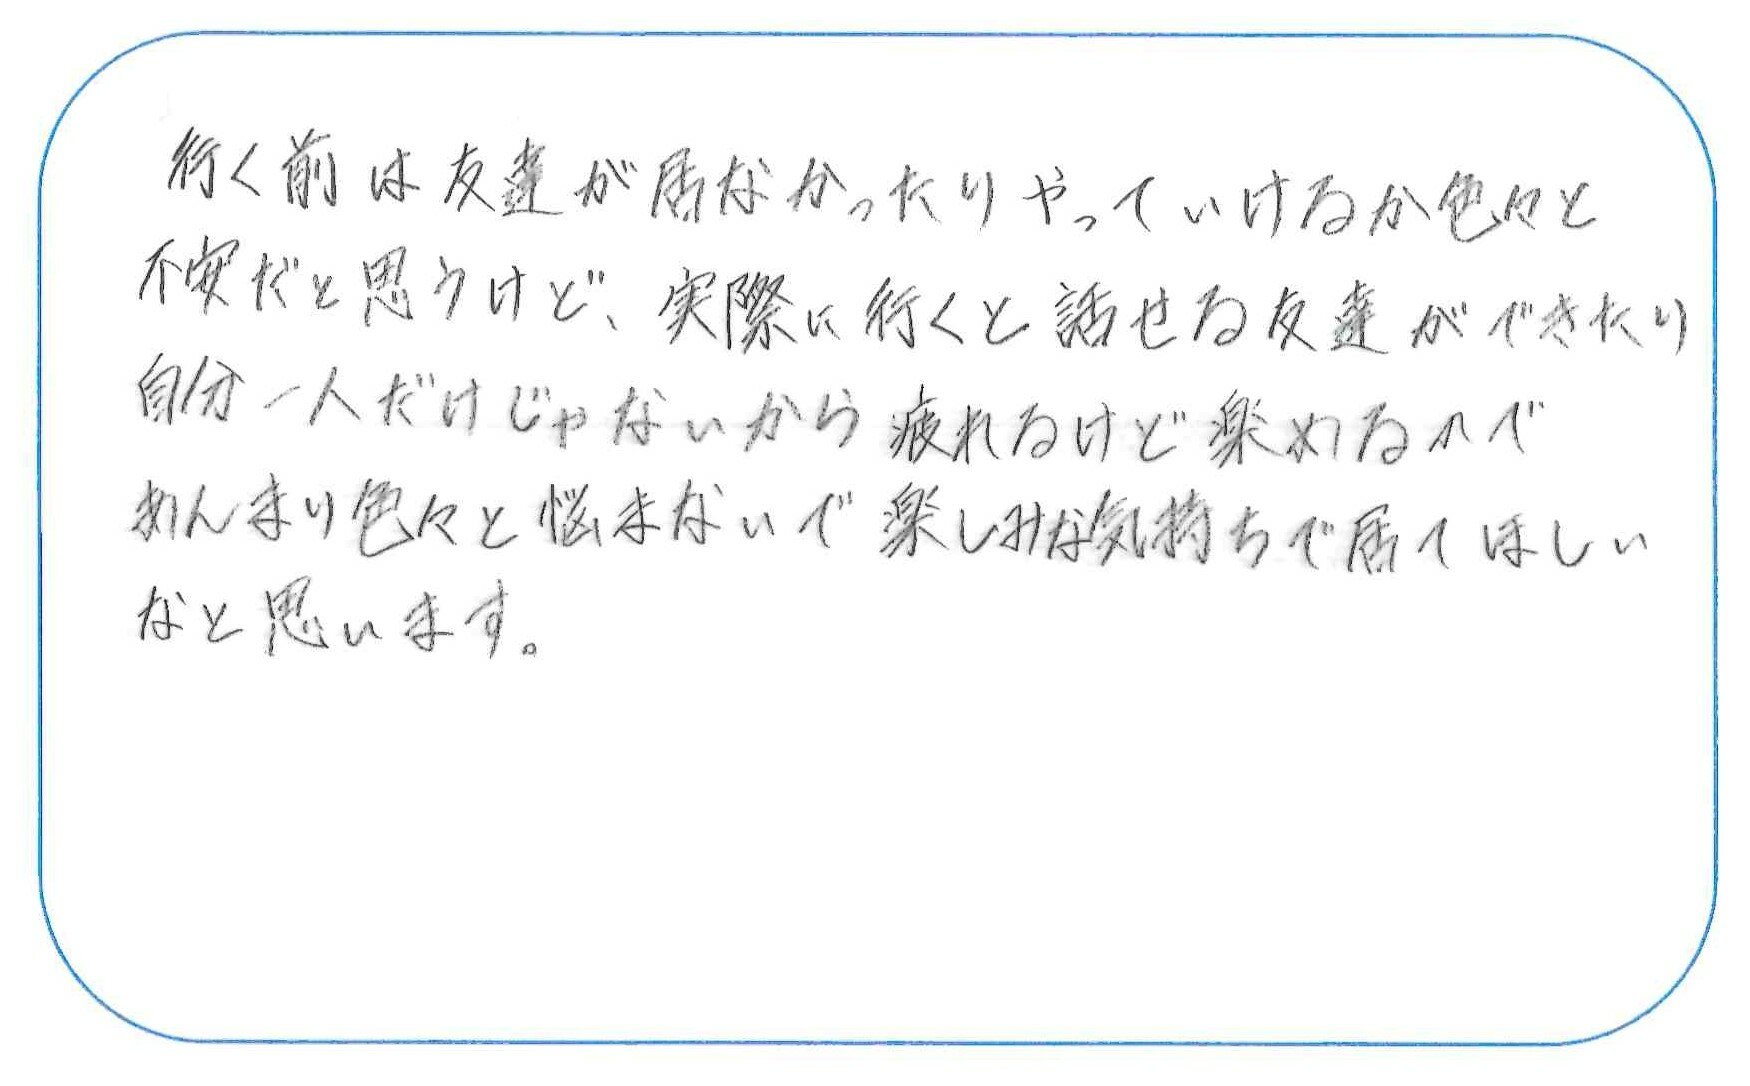 行く前は友達が居なかったりやっていけるか色々と
不安だと思うけど、実際に行くと話せる友達ができたり
自分一人だけじゃないから疲れるけど楽めるので
あんまり色々と悩まないで楽しみな気持ちで居てほしい
なと思います。